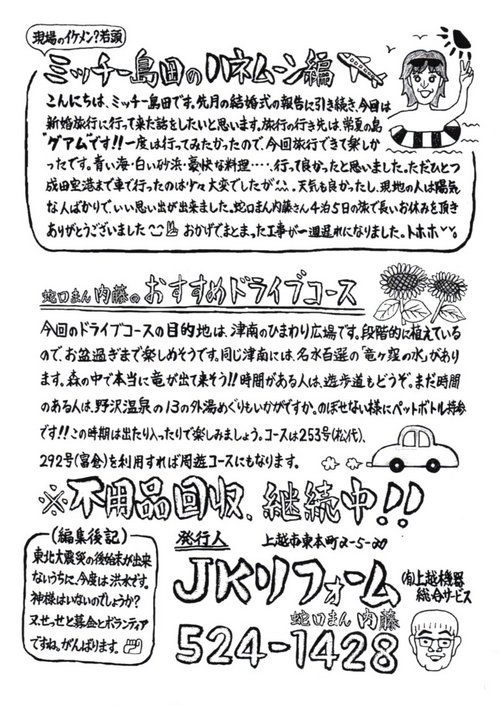 現場のイケメン?若頭
ミッチー島田のハネムーン編
こんにちは、ミッチー島田です。先月の結婚式の報告に引き続き、今回は
新婚旅行に行って来た話をしたいと思います。旅行の行き先は、常夏の島
"グアム"です!!一度は行ってみたかったので、今回旅行できて楽しか
ったです。青い海・白い砂浜・豪快な料理‥‥、行って良かったと思いました。ただひとつ
成田空港まで車で行ったのは少々大変でしたが、天気も良かったし、現地の人は陽気
な人ばかりで、いい思い出が出来ました。蛇口まん内藤さん4泊5日の旅で長いお休みを頂き
ありがとうございました おかげでまとまった工事が一週遅れになりました。トホホ
蛇口まん内藤のおすすめドライブコース
今回のドライブコースの目的地は、津南のひまわり広場です。段階的に植えている
のでお盆過ぎまで楽しめそうです。同じ津南には、名水百選の「竜ヶ窪の水」があり
ます。森の中で本当に竜が出て来そう!!時間がある人は、遊歩道もどうぞ。まだ時間
のある人は、野沢温泉の13の外湯めぐりもいかがですか。のぼせない様にペットボトル持参
です!!この時期は出たり入ったりで楽しみましょう。コースは253号(松代)、
292号(富倉)を利用すれば周遊コースにもなります。
※不用品回収、継続中!!
(編集後記)
東北大震災の後始末が出来
ないうちに、今度は洪水です。
神様はいないのでしょうか?
又、せっせと募金とボランティア
ですね。がんばります。
発行人 上越市東本町2-5-20
JKリフォーム (有)上越機器
総合サービス
蛇口まん 内藤
524-1428